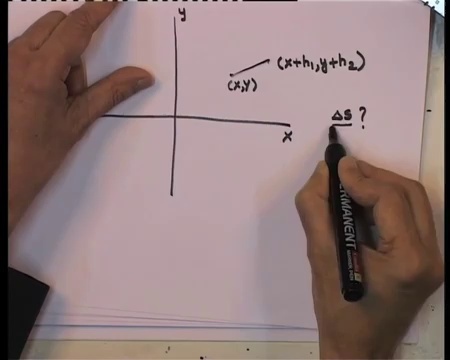 y
(x+h₁,y+h₂)
(x,y)
Δs ?
x
PERMANENT